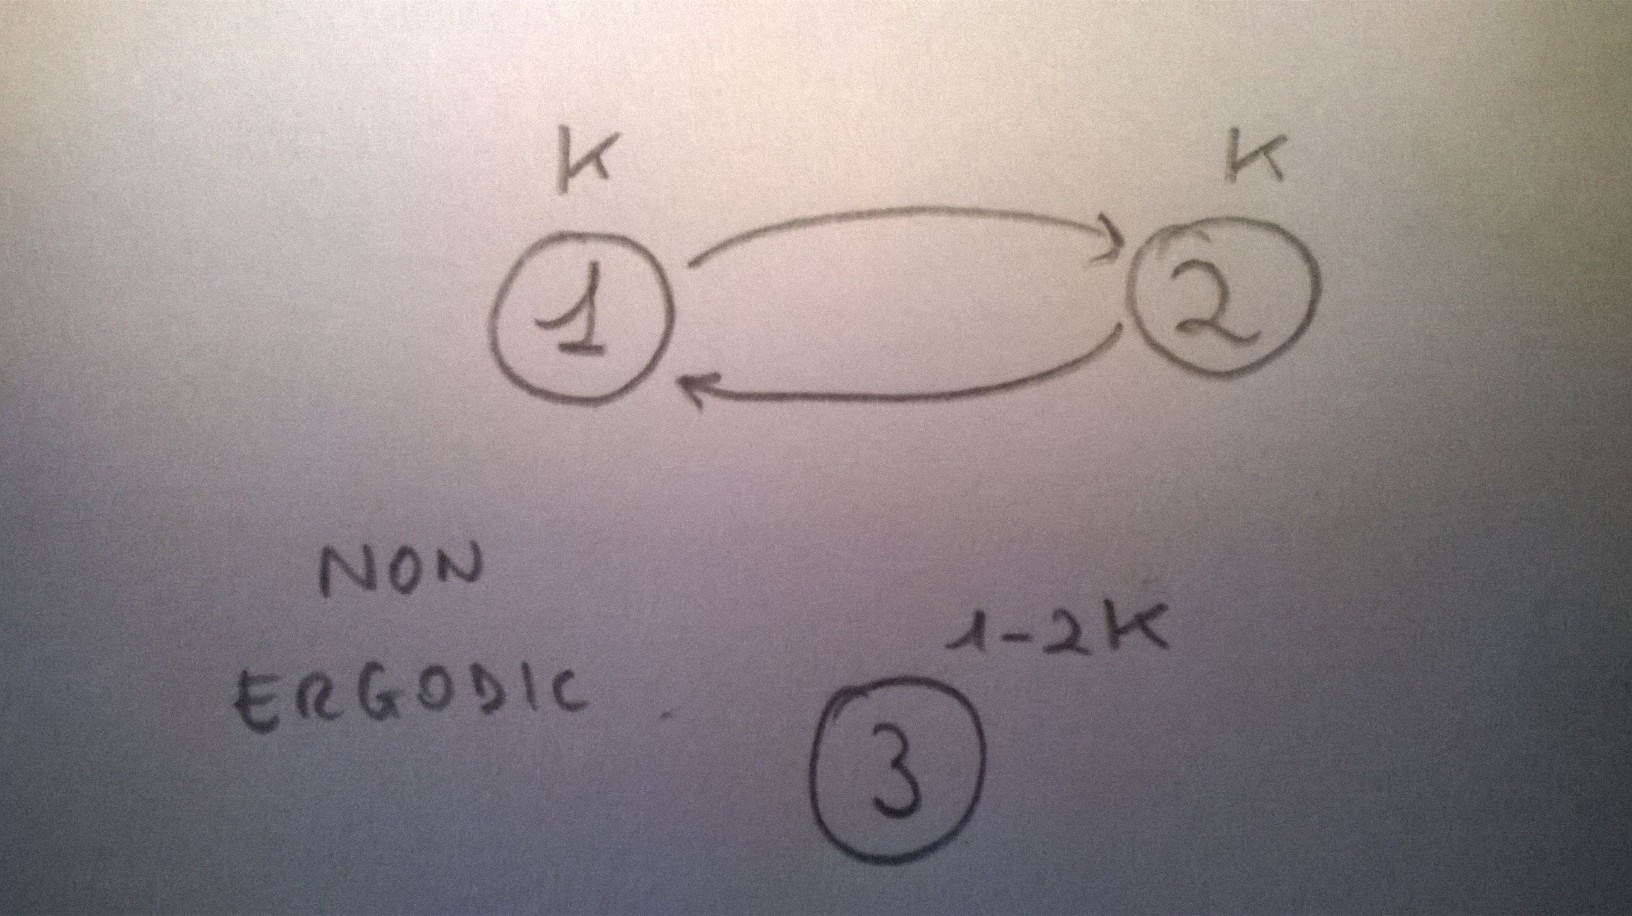 K
K
1
2
NON
ERGODIC
1-2K
3